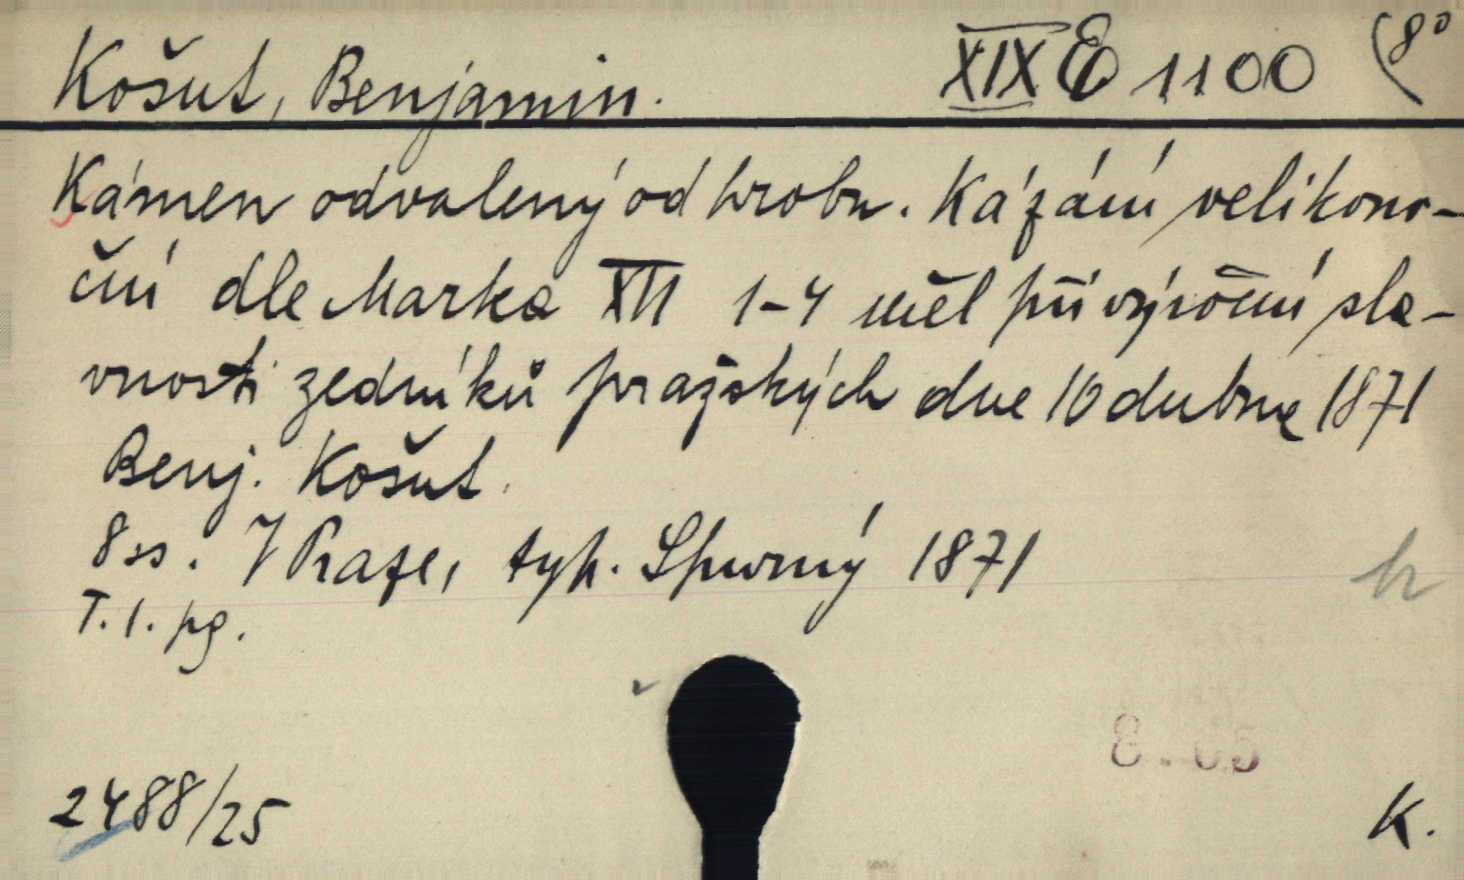 Košut, Benjamin. XIX E 1100 (8°
Kámen odvalený od hrobu. Kázání velikono-
ční dle Marka XVI 1-4 měl při výroční sla-
vnosti zedníků pražských dne 10 dubna 1871
Benj. Košut.
8 ss. V Praze, typ. Spurný 1871
T. l. pg.
2488/25
K.